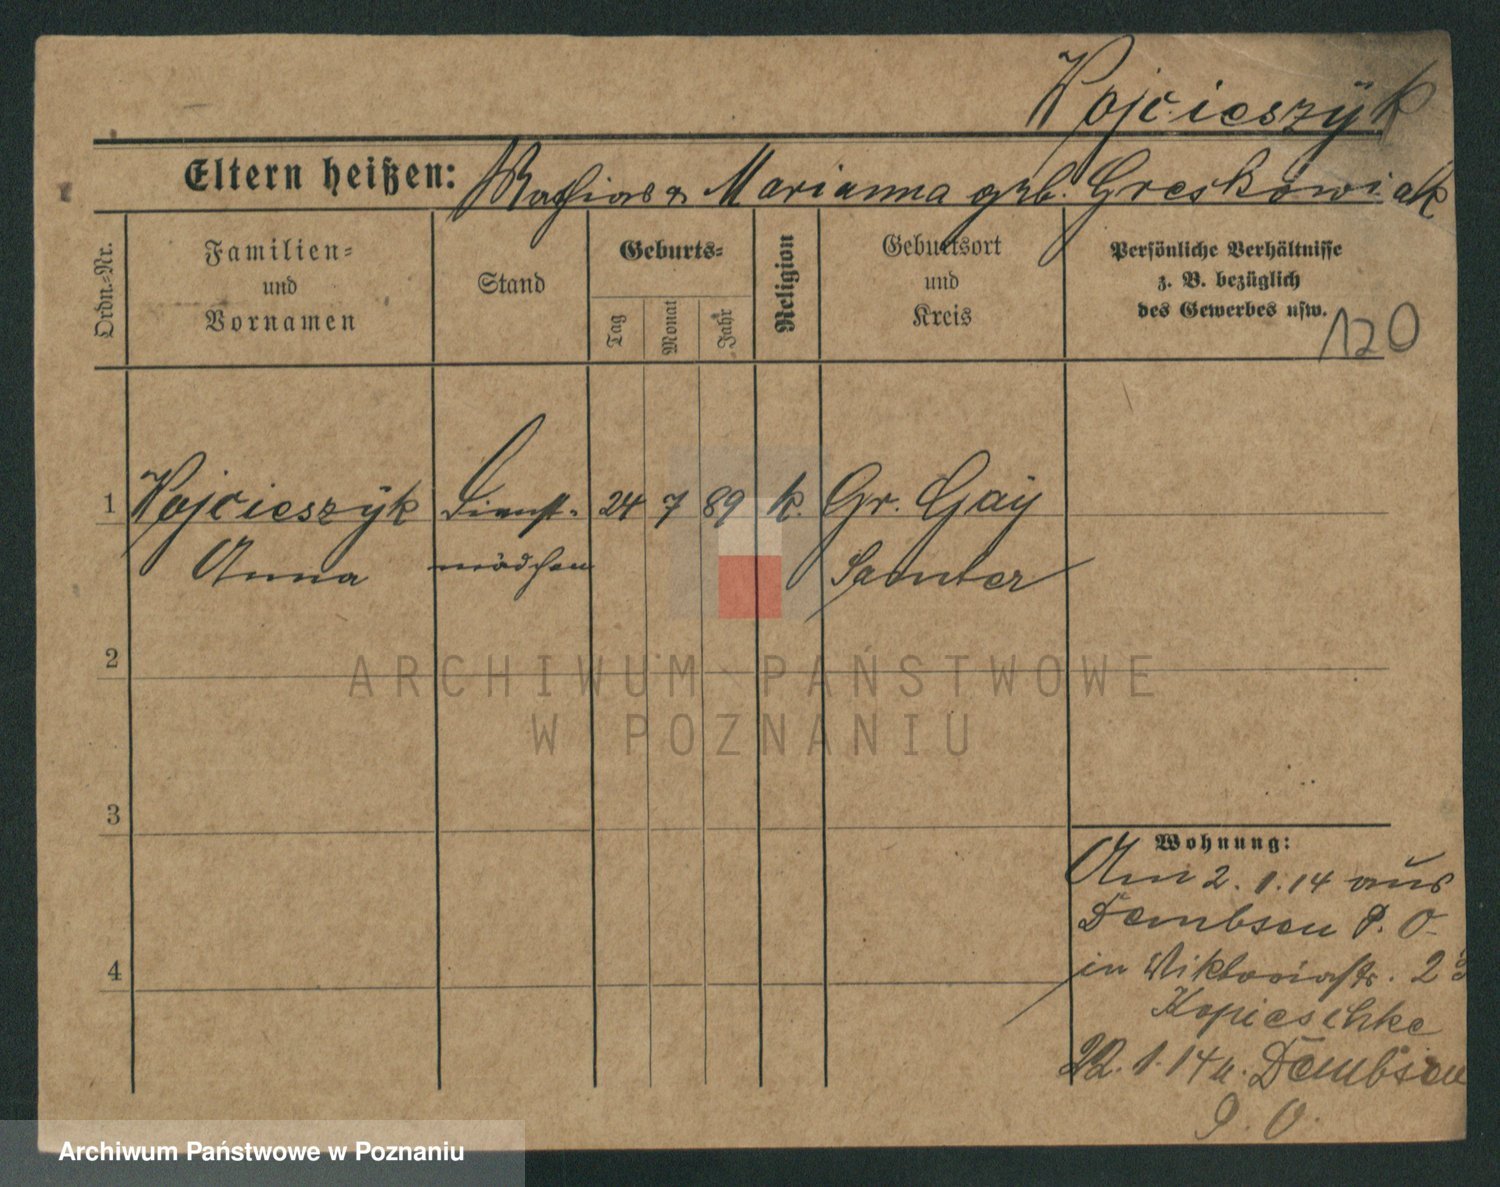 Wojcieszÿk
Eltern heißen: Mathias & Marianna geb. Greskowiak
Ordn.=Nr.
Familien=
und
Vornamen
Stand
Geburts=
Tag
Monat
Jahr
Religion
Geburtsort
und
Kreis
Persönliche Verhältnisse
z. B. bezüglich
des Gewerbes usw.
120
1 Wojcieszÿk Dienst- 24 7 89 k. Gr. Gaÿ
Anna mädchen Samter
2
ARCHIWUM PAŃSTWOWE
W POZNANIU
3
Wohnung:
Am 2. 1. 14 aus
Dembsen P. O.
4
in Viktoriastr. 23
Kopieschke
22. 1. 14 n. Dembsen
P. O.
Archiwum Państwowe w Poznaniu